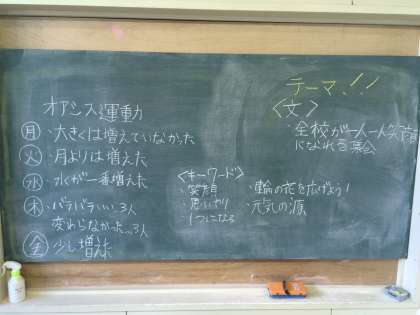 オアシス運動
月・大きくは増えていなかった
火・月よりは増えた
水・水が一番増えた
木・バラバラ いい、3人
変わらなかった、3人
金 少し増えた
<キーワード>
・笑顔
・思いやり
・1つになる
テーマ!!
<文>
・全校が一人一人笑顔
になれる集会
・輪の花を広げよう!
・元気の源